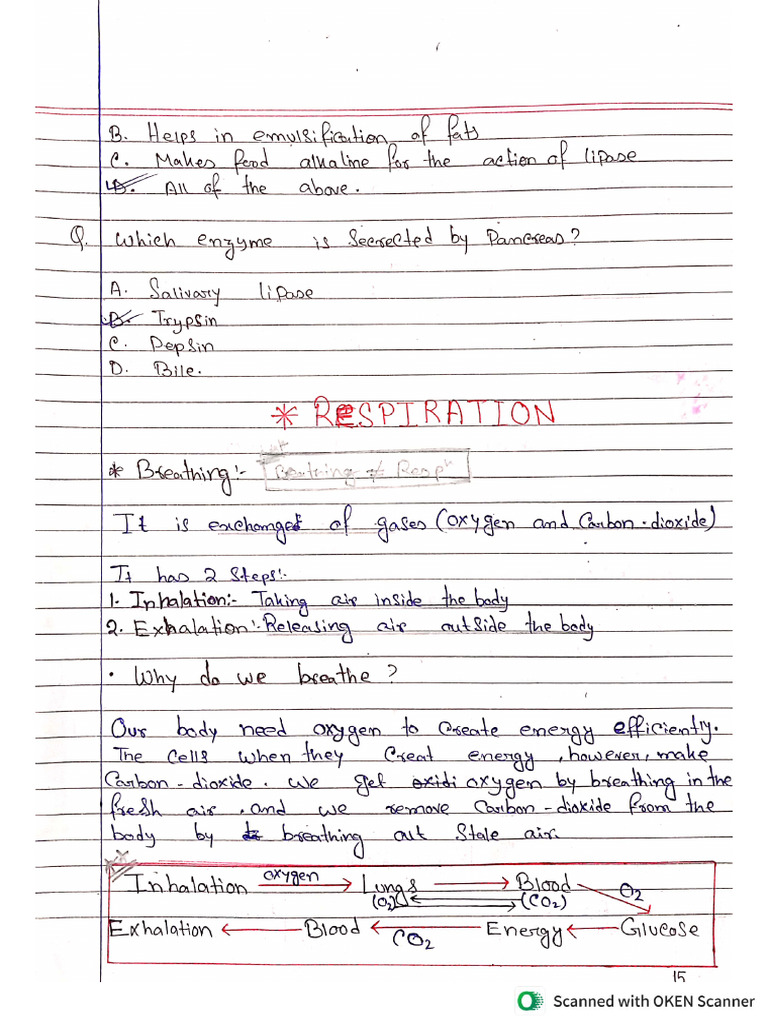 B. Helps in emulsification of fats
C. Makes food alkaline for the action of lipase
D. All of the above.
Q. Which enzyme is Secrected by Pancreas?
A. Salivary lipase
B. Trypsin
C. Pepsin
D. Bile.
* RESPIRATION
* Breathing:- Breathing ≠ Respⁿ
It is exchanges of gases (oxygen and Carbon-dioxide)
It has 2 Steps:-
1. Inhalation:- Taking air inside the body
2. Exhalation:- Releasing air outside the body
• Why do we breathe?
Our body need oxygen to create energy efficiently.
The cells when they Creat energy, however, make
Carbon-dioxide. We get oxygen by breathing in the
fresh air, and we remove Carbon-dioxide from the
body by breathing out Stale air.
Inhalation oxygen → Lungs → Blood O2
(O2) (CO2)
Exhalation ← Blood ← CO2 Energy ← Glucose
15
Scanned with OKEN Scanner